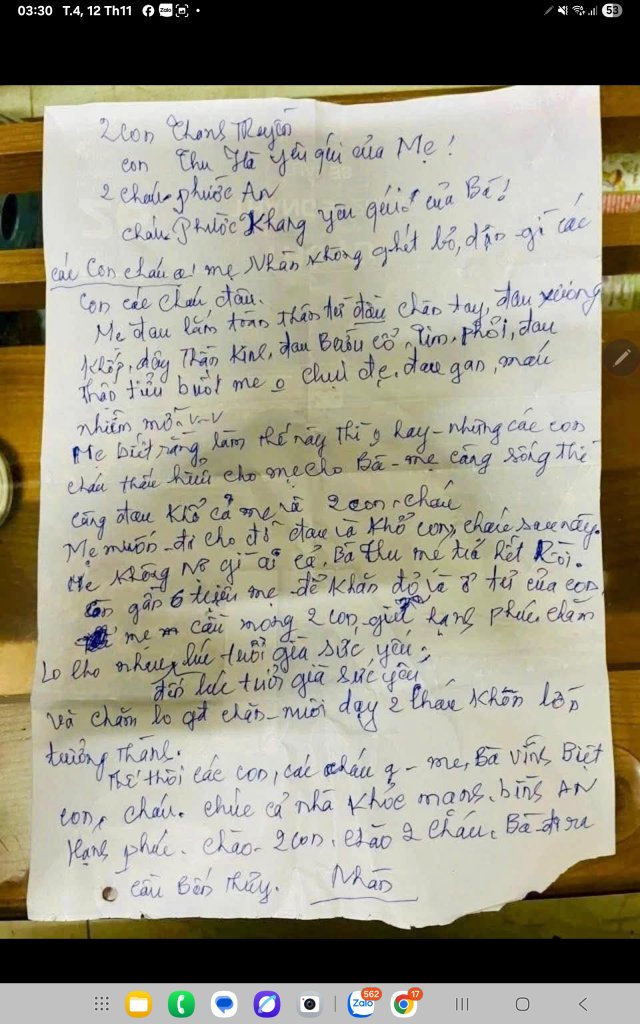 03:30 T.4, 12 Th11
Zalo
53
2 con Thanh Truyền
con Thu Hà yêu quí của Mẹ!
2 cháu Phước AN
cháu Phước Khang yêu quí của Bà!
các con cháu ạ! mẹ Nhàn không ghét bỏ, dận gì các
con các cháu đâu.
Mẹ đau lắm toàn thân từ đầu chân tay, đau xương
khớp, dây Thần Kinh, đau Bướu cổ, Tim, phổi, đau
thận tiểu buốt mẹ o chịu đc, đau gan, máu
nhiễm mỡ v-v
Mẹ biết rằng làm thế này thì o hay - nhưng các con
cháu thấu hiểu cho mẹ cho Bà - mẹ càng sống thì
càng đau khổ cả mẹ và 2 con, cháu
Mẹ muốn đi cho đỡ đau và khổ con, cháu sau này.
Mẹ không nợ gì ai cả, Bà Thu mẹ trả hết Rồi.
còn gần 6 triệu mẹ để khăn đỏ và ở tủ của con
mẹ cầu mong 2 con giữ hạnh phúc, chăm
lo cho nhau lúc tuổi già sức yếu,
đến lúc tuổi già sức yếu
và chăm lo gđ chăn nuôi dạy 2 cháu khôn lớn
trưởng thành.
Thế thôi các con, các cháu ạ - mẹ, Bà vĩnh Biệt
con, cháu. chúc cả nhà khỏe mạnh, bình AN
Hạnh phúc. chào 2 con, chào 2 cháu, Bà đi ra
cầu Bến Thủy. Nhàn
562
Zalo
17